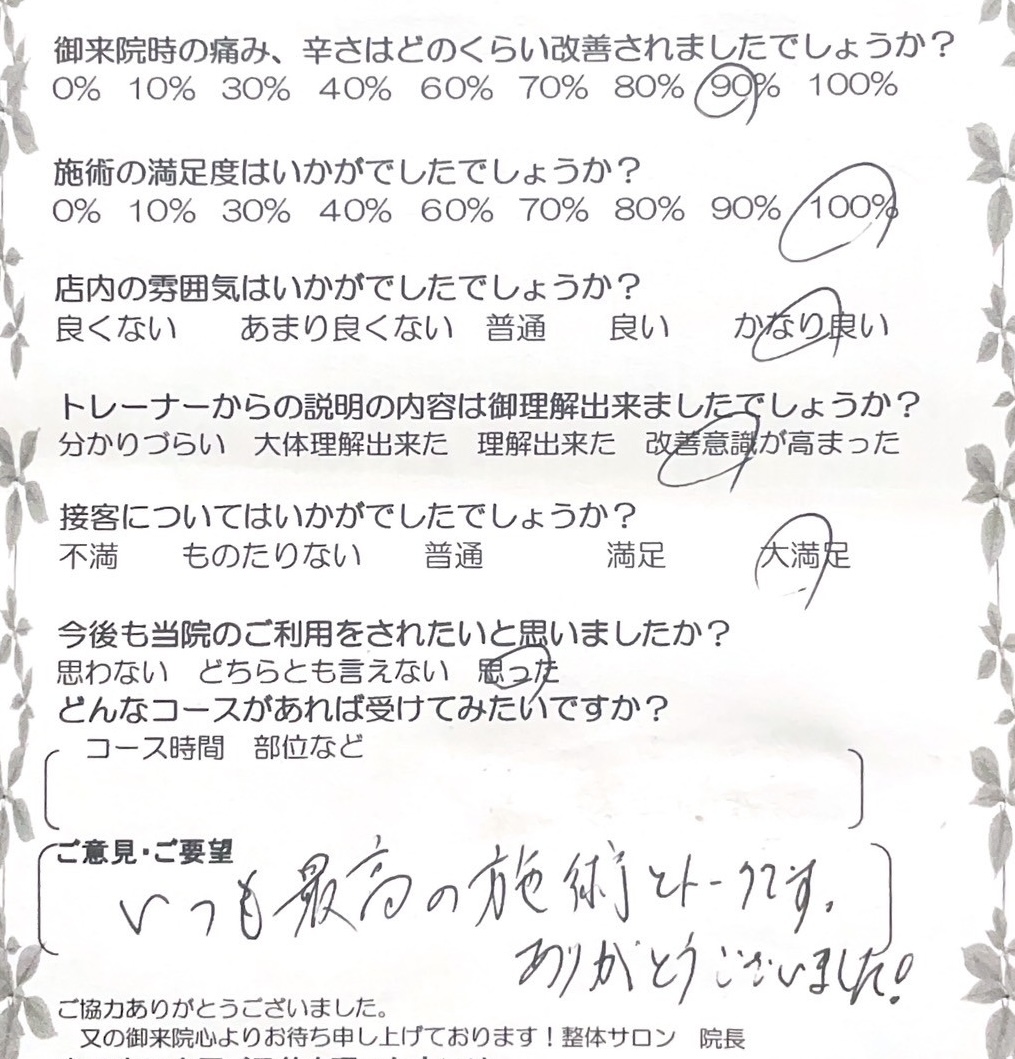 御来院時の痛み、辛さはどのくらい改善されましたでしょうか？
0% 10% 30% 40% 60% 70% 80% 90% 100%
施術の満足度はいかがでしたでしょうか？
0% 10% 30% 40% 60% 70% 80% 90% 100%
店内の雰囲気はいかがでしたでしょうか？
良くない あまり良くない 普通 良い かなり良い
トレーナーからの説明の内容は御理解出来ましたでしょうか？
分かりづらい 大体理解出来た 理解出来た 改善意識が高まった
接客についてはいかがでしたでしょうか？
不満 ものたりない 普通 満足 大満足
今後も当院のご利用をされたいと思いましたか？
思わない どちらとも言えない 思った
どんなコースがあれば受けてみたいですか？
コース時間 部位など
ご意見・ご要望
いつも最高の施術とトークです。
ありがとうございました!
ご協力ありがとうございました。
又の御来院心よりお待ち申し上げております！整体サロン 院長